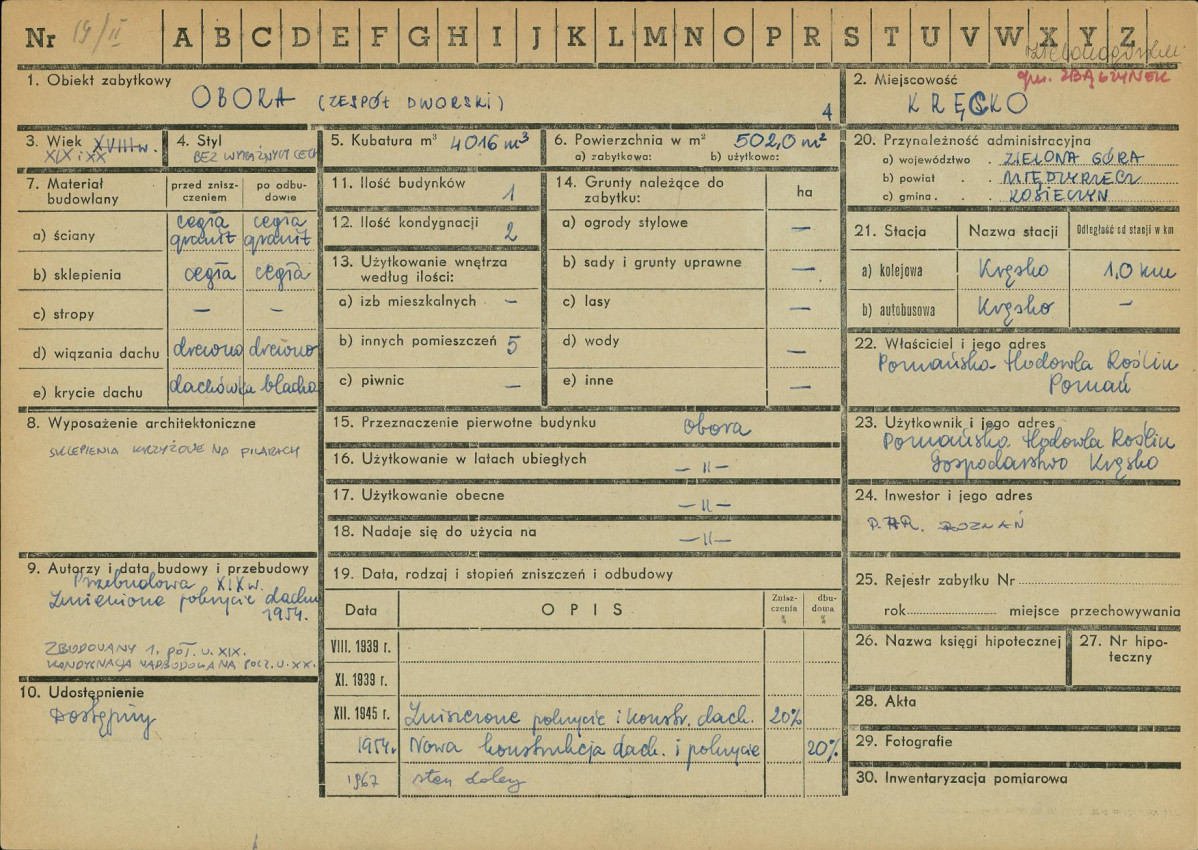 Nr 19/II A B C D E F G H I J K L M N O P R S T U V W X Y Z
gm. ZBĄSZYNEK
1. Obiekt zabytkowy
OBORA (ZESPÓŁ DWORSKI)
4
2. Miejscowość
KRĘCKO
3. Wiek XVIII w.
XIX i XX
4. Styl
BEZ WYRAŹNYCH CECH
5. Kubatura m³ 4016 m³
6. Powierzchnia w m² 502,0 m²
a) zabytkowa: b) użytkowa:
7. Materiał budowlany
przed zniszczeniem
po odbudowie
a) ściany cegła granit cegła granit
b) sklepienia cegła cegła
c) stropy — —
d) wiązania dachu drewno drewno
e) krycie dachu dachówka blacha
8. Wyposażenie architektoniczne
SKLEPIENIA KRZYŻOWE NA FILARACH
9. Autorzy i data budowy i przebudowy
Przebudowa XIX w.
Zmienione pokrycie dachu
1954.
ZBUDOWANY 1. POŁ. W. XIX.
KONDYGNACJA NADBUDOWANA POCZ. W. XX.
10. Udostępnienie
Dostępny
11. Ilość budynków 1
12. Ilość kondygnacji 2
13. Użytkowanie wnętrza
według ilości:
a) izb mieszkalnych –
b) innych pomieszczeń 5
c) piwnic —
14. Grunty należące do
zabytku: ha
a) ogrody stylowe —
b) sady i grunty uprawne —
c) lasy —
d) wody —
e) inne —
15. Przeznaczenie pierwotne budynku obora
16. Użytkowanie w latach ubiegłych —"—
17. Użytkowanie obecne —"—
18. Nadaje się do użycia na —"—
19. Data, rodzaj i stopień zniszczeń i odbudowy
Data OPIS Zniszczenia % dbudowa %
VIII. 1939 r.
XI. 1939 r.
XII. 1945 r. Zniszczone pokrycie i konstr. dach. 20%
1954r Nowa konstrukcja dach. i pokrycie 20%
1967 stan dobry
20. Przynależność administracyjna
a) województwo . ZIELONA GÓRA
b) powiat . . MIĘDZYRZECZ
c) gmina . . KOSIECZYN
21. Stacja Nazwa stacji Odległość od stacji w km
a) kolejowa Kręsko 1,0 km
b) autobusowa Kręsko –
22. Właściciel i jego adres
Poznańska Hodowla Roślin
Poznań
23. Użytkownik i jego adres
Poznańska Hodowla Roślin
Gospodarstwo Kręsko
24. Inwestor i jego adres
P.H.R. POZNAŃ
25. Rejestr zabytku Nr
rok miejsce przechowywania
26. Nazwa księgi hipotecznej
27. Nr hipoteczny
28. Akta
29. Fotografie
30. Inwentaryzacja pomiarowa